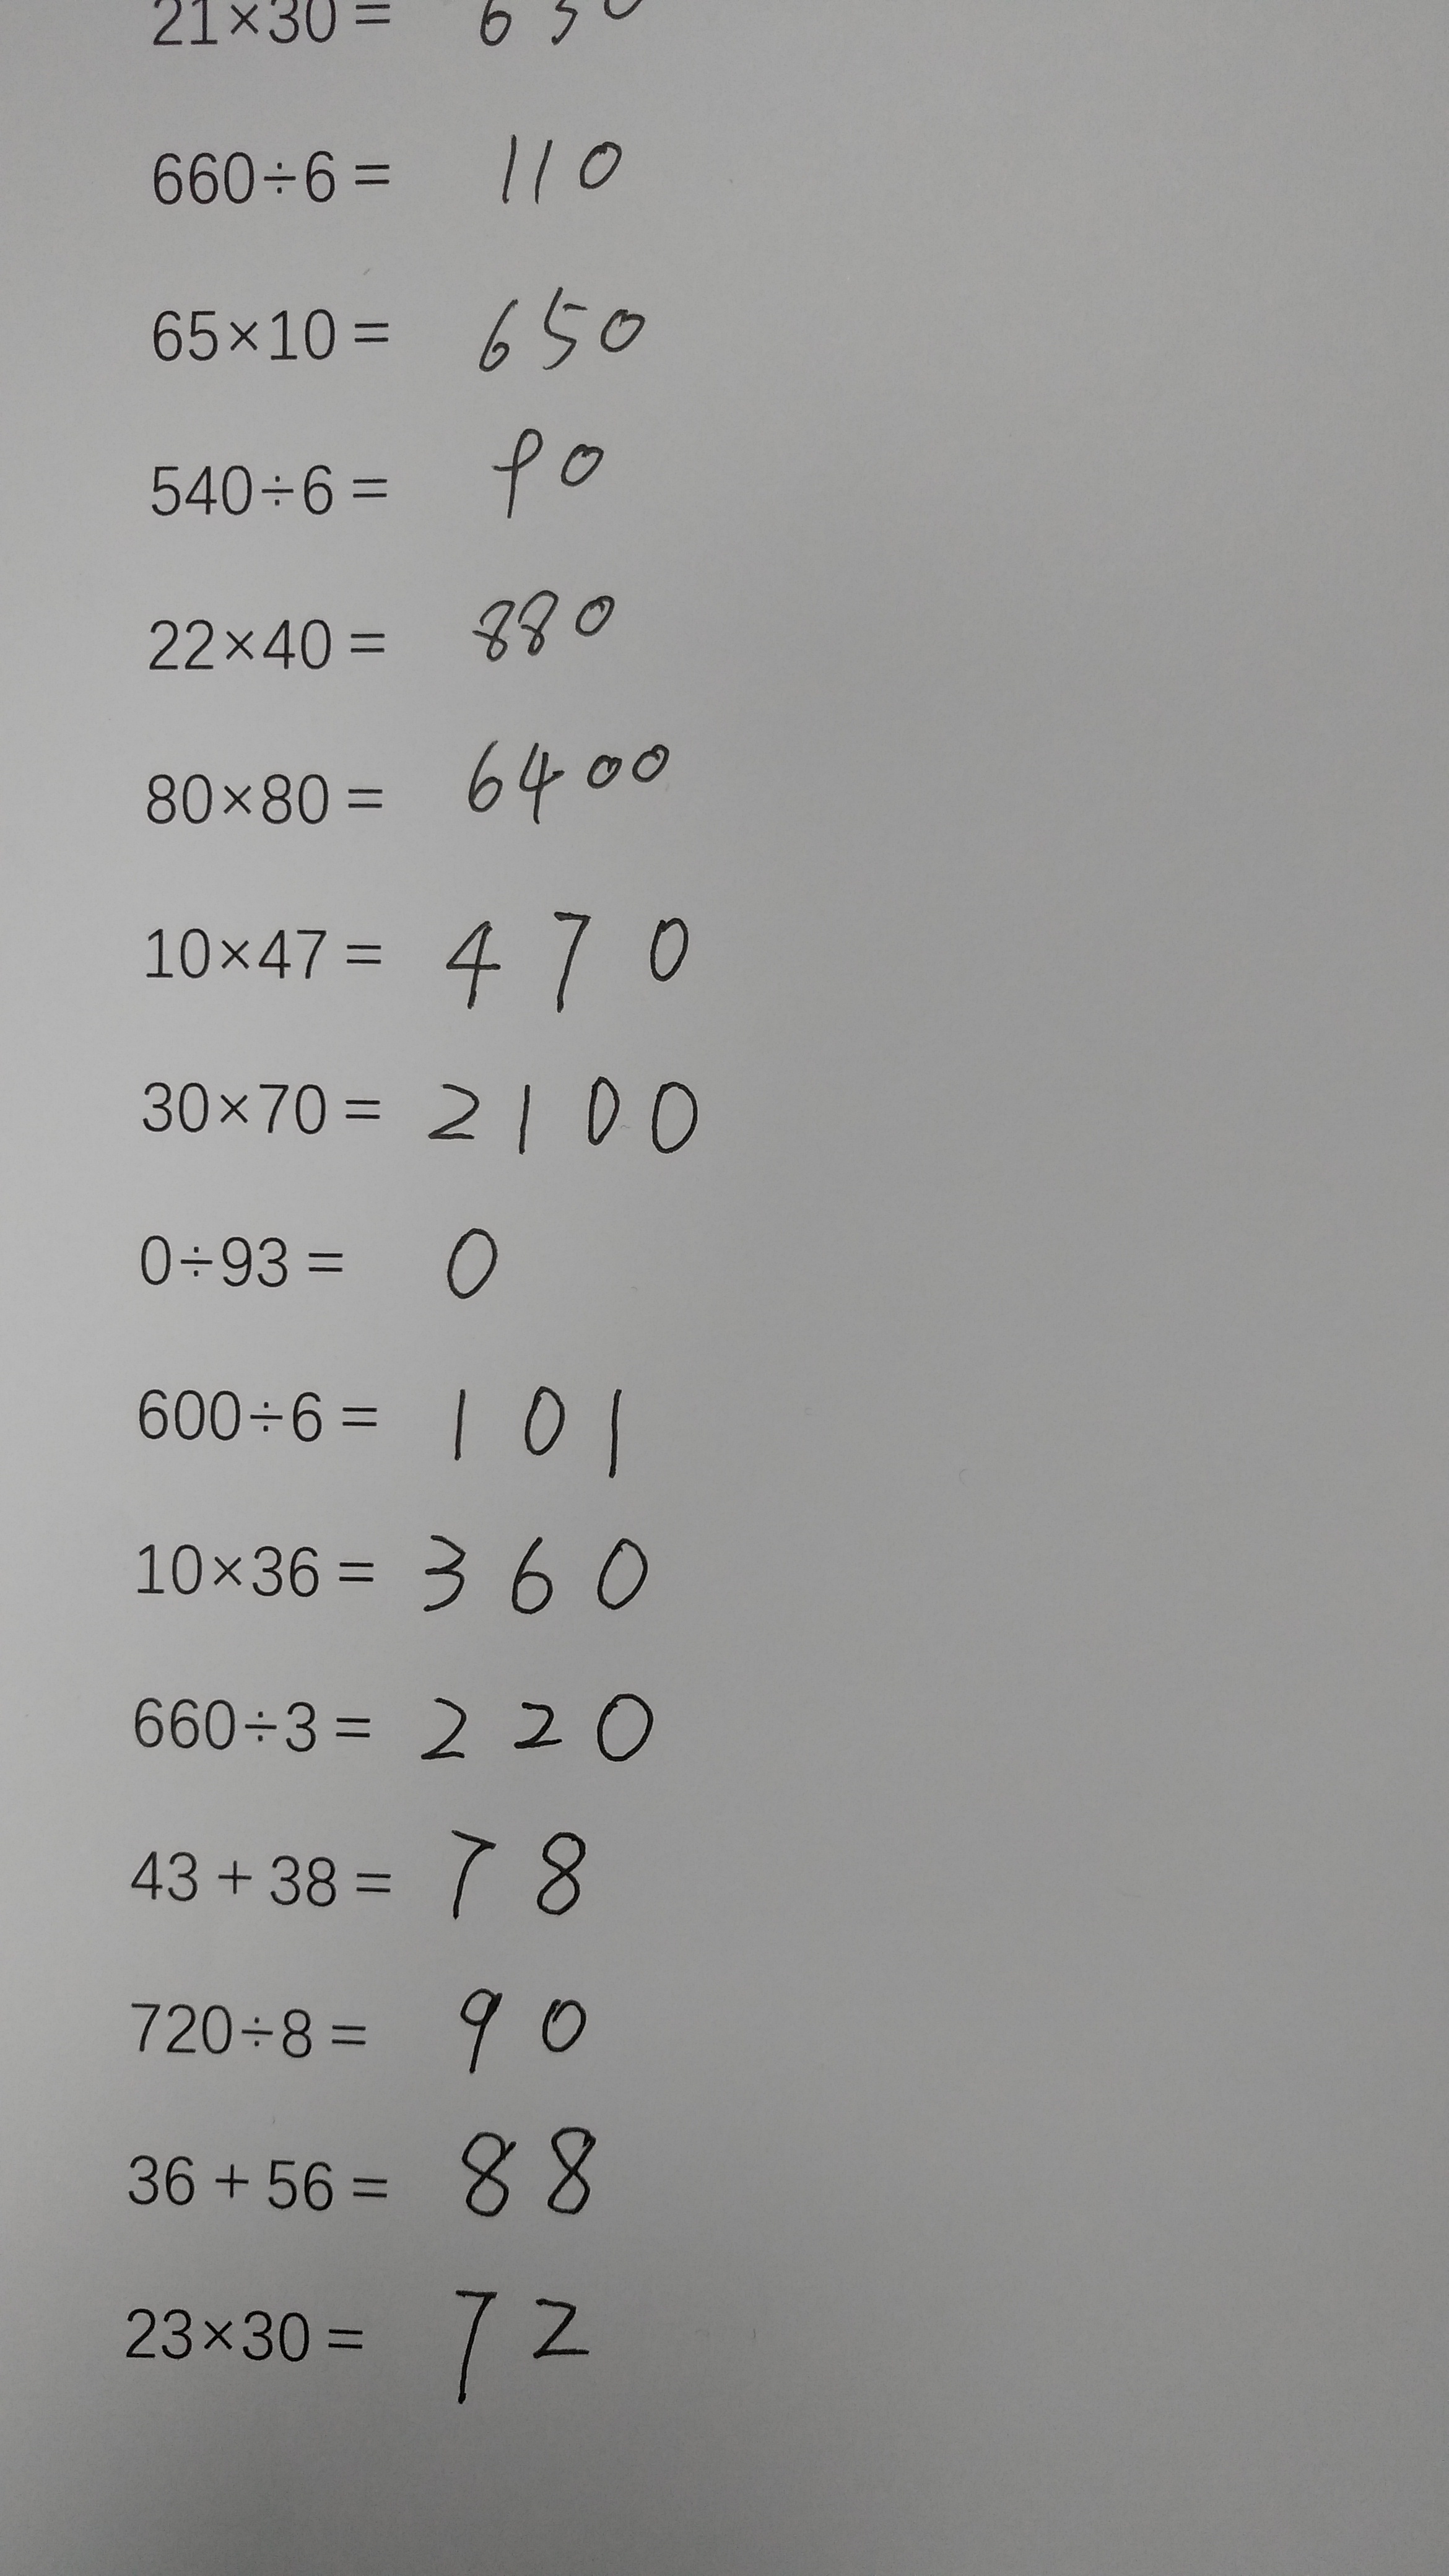 21×30= 630
660÷6= 110
65×10= 650
540÷6= 90
22×40= 880
80×80= 6400
10×47= 470
30×70= 2100
0÷93= 0
600÷6= 101
10×36= 360
660÷3= 220
43+38= 78
720÷8= 90
36+56= 88
23×30= 72